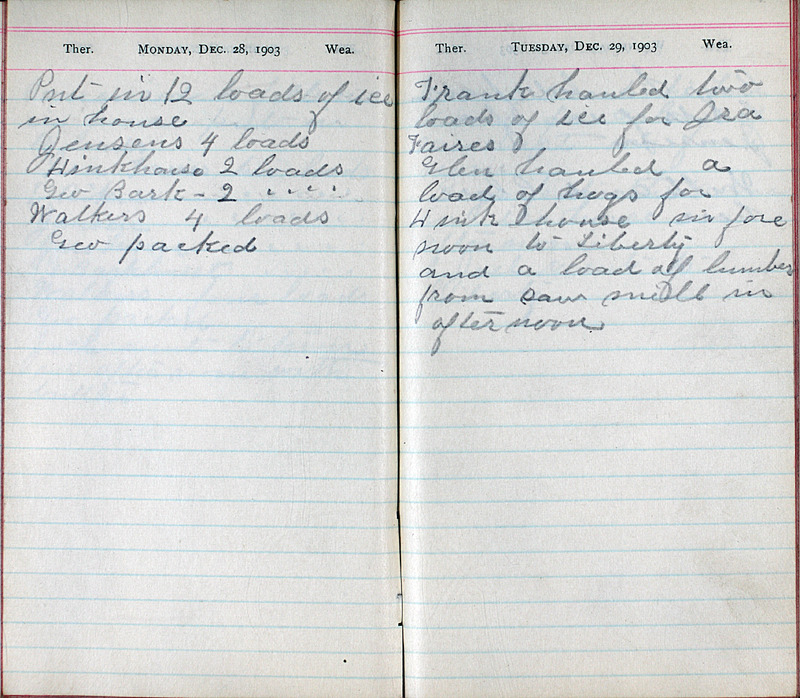 Ther. MONDAY, DEC. 28, 1903 Wea.
Put in 12 loads of ice
in house
Jensens 4 loads
Hinkhouse 2 loads
Geo Bark - 2 " " "
Walkers 4 loads
Geo packed
Ther. TUESDAY, DEC. 29, 1903 Wea.
Frank hauled two
loads of ice for Ira
Faires
Glen hauled a
load of hogs for
Hinkhouse in fore
noon to Liberty
and a load of lumber
from saw mill in
afternoon